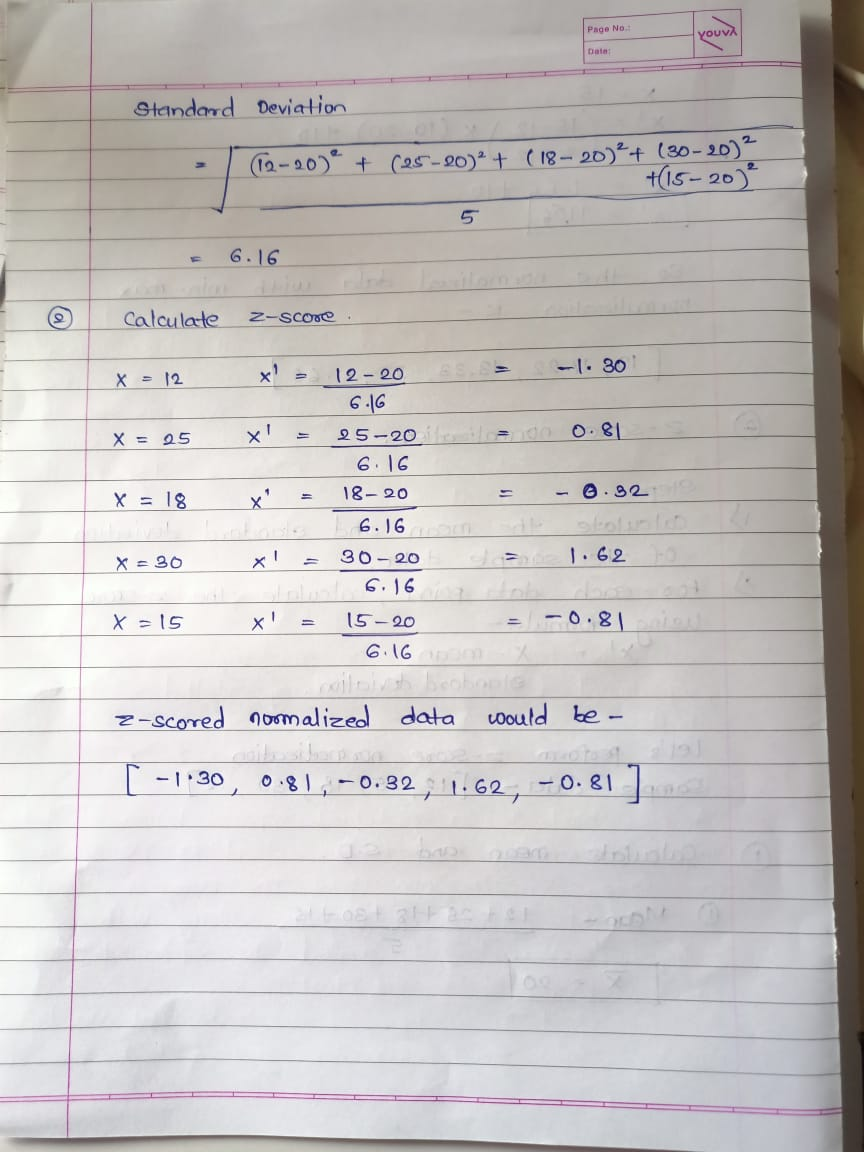 Page No.:
Date:
YOUVA
Standard Deviation
= √ (12-20)² + (25-20)² + (18-20)² + (30-20)²
+(15-20)²
5
= 6.16
② Calculate z-score.
x = 12 x' = 12-20 = -1.30
6.16
x = 25 x' = 25-20 = 0.81
6.16
x = 18 x' = 18-20 = -0.32
6.16
x = 30 x' = 30-20 = 1.62
6.16
x = 15 x' = 15-20 = -0.81
6.16
z-scored normalized data would be -
[ -1.30, 0.81, -0.32, 1.62, -0.81 ]